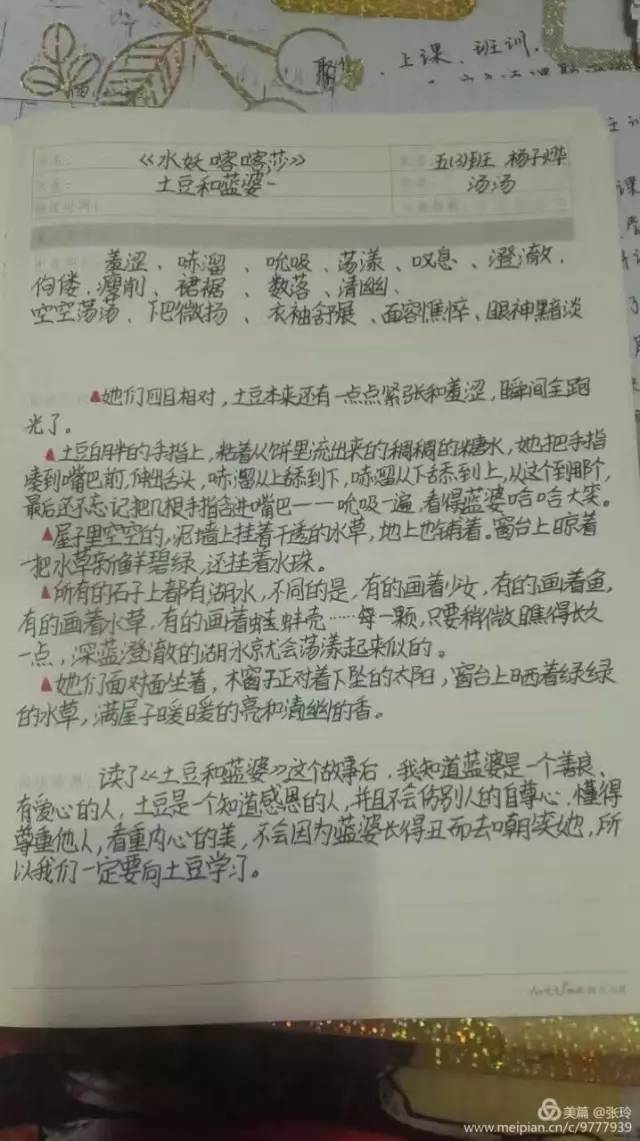 上课、班训、
《水妖喀喀莎》 五(3)班 杨子烨
土豆和蓝婆 汤汤
羞涩、哧溜、吮吸、荡漾、叹息、澄澈、
佝偻、瘦削、裙裾、数落、清幽、
空空荡荡、下巴微扬、衣袖舒展、面容憔悴、眼神黯淡
▲她们四目相对，土豆本来还有一点点紧张和羞涩，瞬间全跑
光了。
▲土豆白胖的手指上，粘着从饼里流出来的稠稠的糖水，她把手指
凑到嘴巴前，伸出舌头，哧溜从上舔到下，哧溜从下舔到上，从这个到那个，
最后还不忘记把几根手指含进嘴巴一一吮吸一遍，看得蓝婆哈哈大笑。
▲屋子里空空的，泥墙上挂着干透的水草，地上也铺着。窗台上晾着
一把水草新鲜碧绿，还挂着水珠。
▲所有的石子上都有湖水，不同的是，有的画着少女，有的画着鱼，
有的画着水草，有的画着蛙蚌壳……每一颗，只要稍微瞧得长久
一点，深蓝澄澈的湖水就会荡漾起来似的。
▲她们面对面坐着，木窗子正对着下坠的太阳，窗台上晒着绿绿
的水草，满屋子暖暖的亮和清幽的香。
读了《土豆和蓝婆》这个故事后，我知道蓝婆是一个善良、
有爱心的人，土豆是一个知道感恩的人，并且不会伤别人的自尊心，懂得
尊重他人，看重内心的美，不会因为蓝婆长得丑而去嘲笑她，所
以我们一定要向土豆学习。
美篇 @张玲
www.meipian.cn/c/9777939